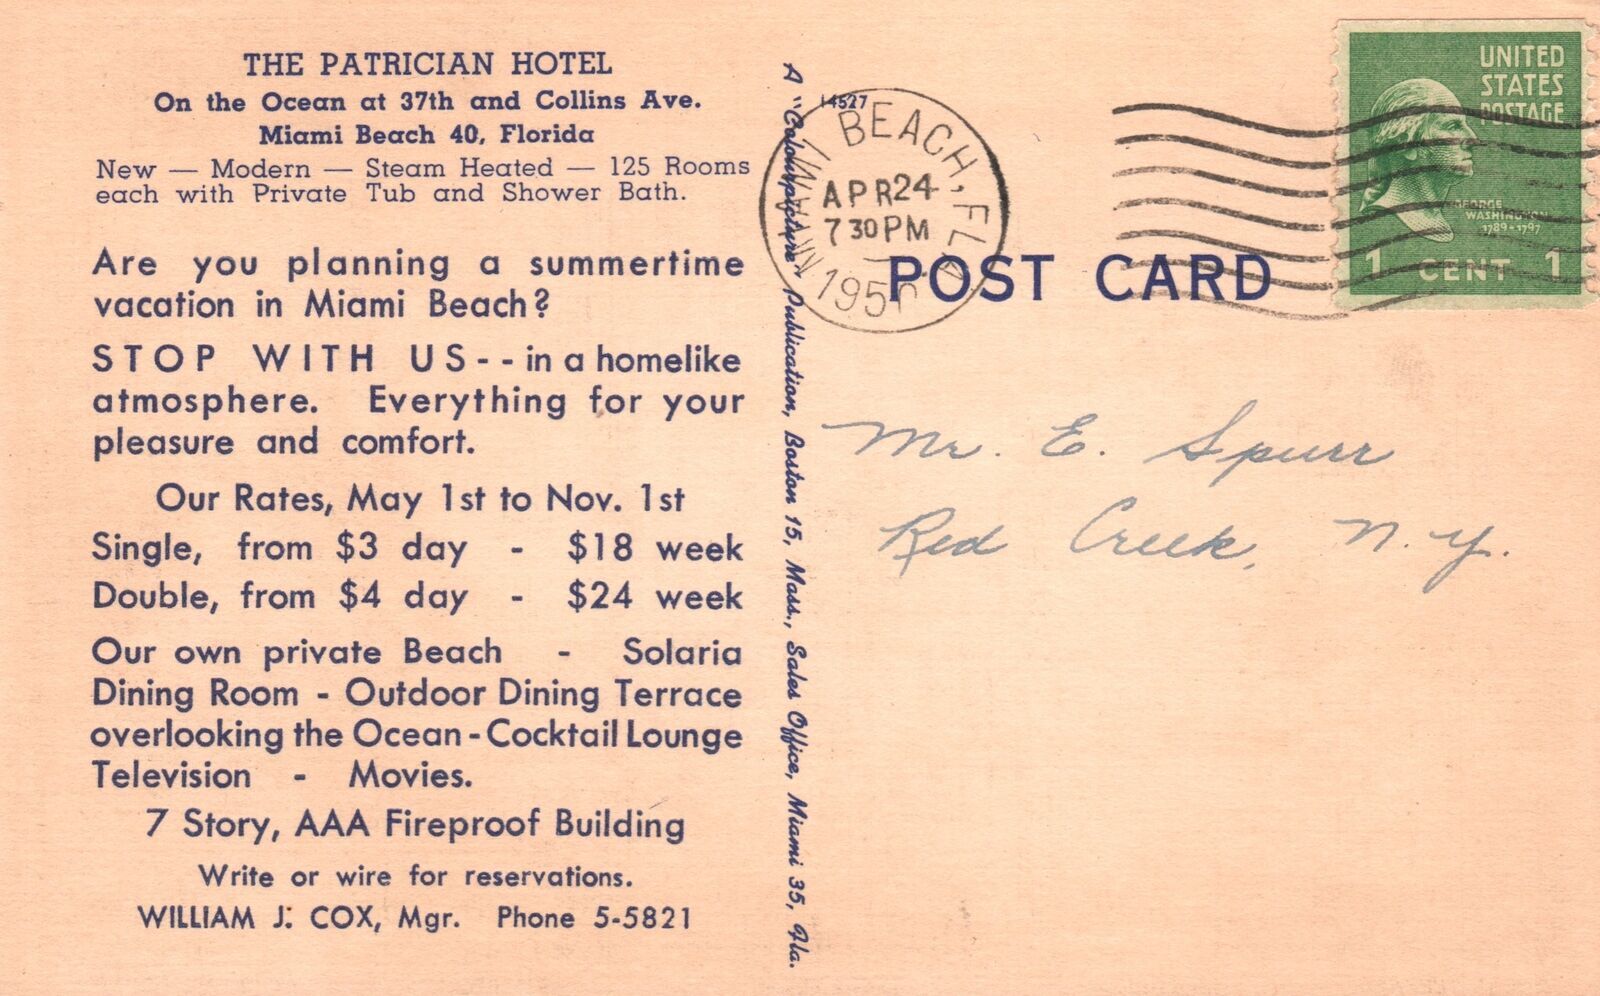 THE PATRICIAN HOTEL
On the Ocean at 37th and Collins Ave.
Miami Beach 40, Florida
New — Modern — Steam Heated — 125 Rooms
each with Private Tub and Shower Bath.
Are you planning a summertime
vacation in Miami Beach?
STOP WITH US-- in a homelike
atmosphere. Everything for your
pleasure and comfort.
Our Rates, May 1st to Nov. 1st
Single, from $3 day - $18 week
Double, from $4 day - $24 week
Our own private Beach - Solaria
Dining Room - Outdoor Dining Terrace
overlooking the Ocean - Cocktail Lounge
Television - Movies.
7 Story, AAA Fireproof Building
Write or wire for reservations.
WILLIAM J. COX, Mgr. Phone 5-5821
A "Colourpicture" Publication, Boston 15, Mass., Sales Office, Miami 35, Fla.
14527
MIAMI BEACH, FLA
APR 24
7 30 PM
POST CARD
UNITED
STATES
POSTAGE
GEORGE
WASHINGTON
1789-1797
1 CENT 1
Mr. E. Spurr
Red Creek, N.Y.